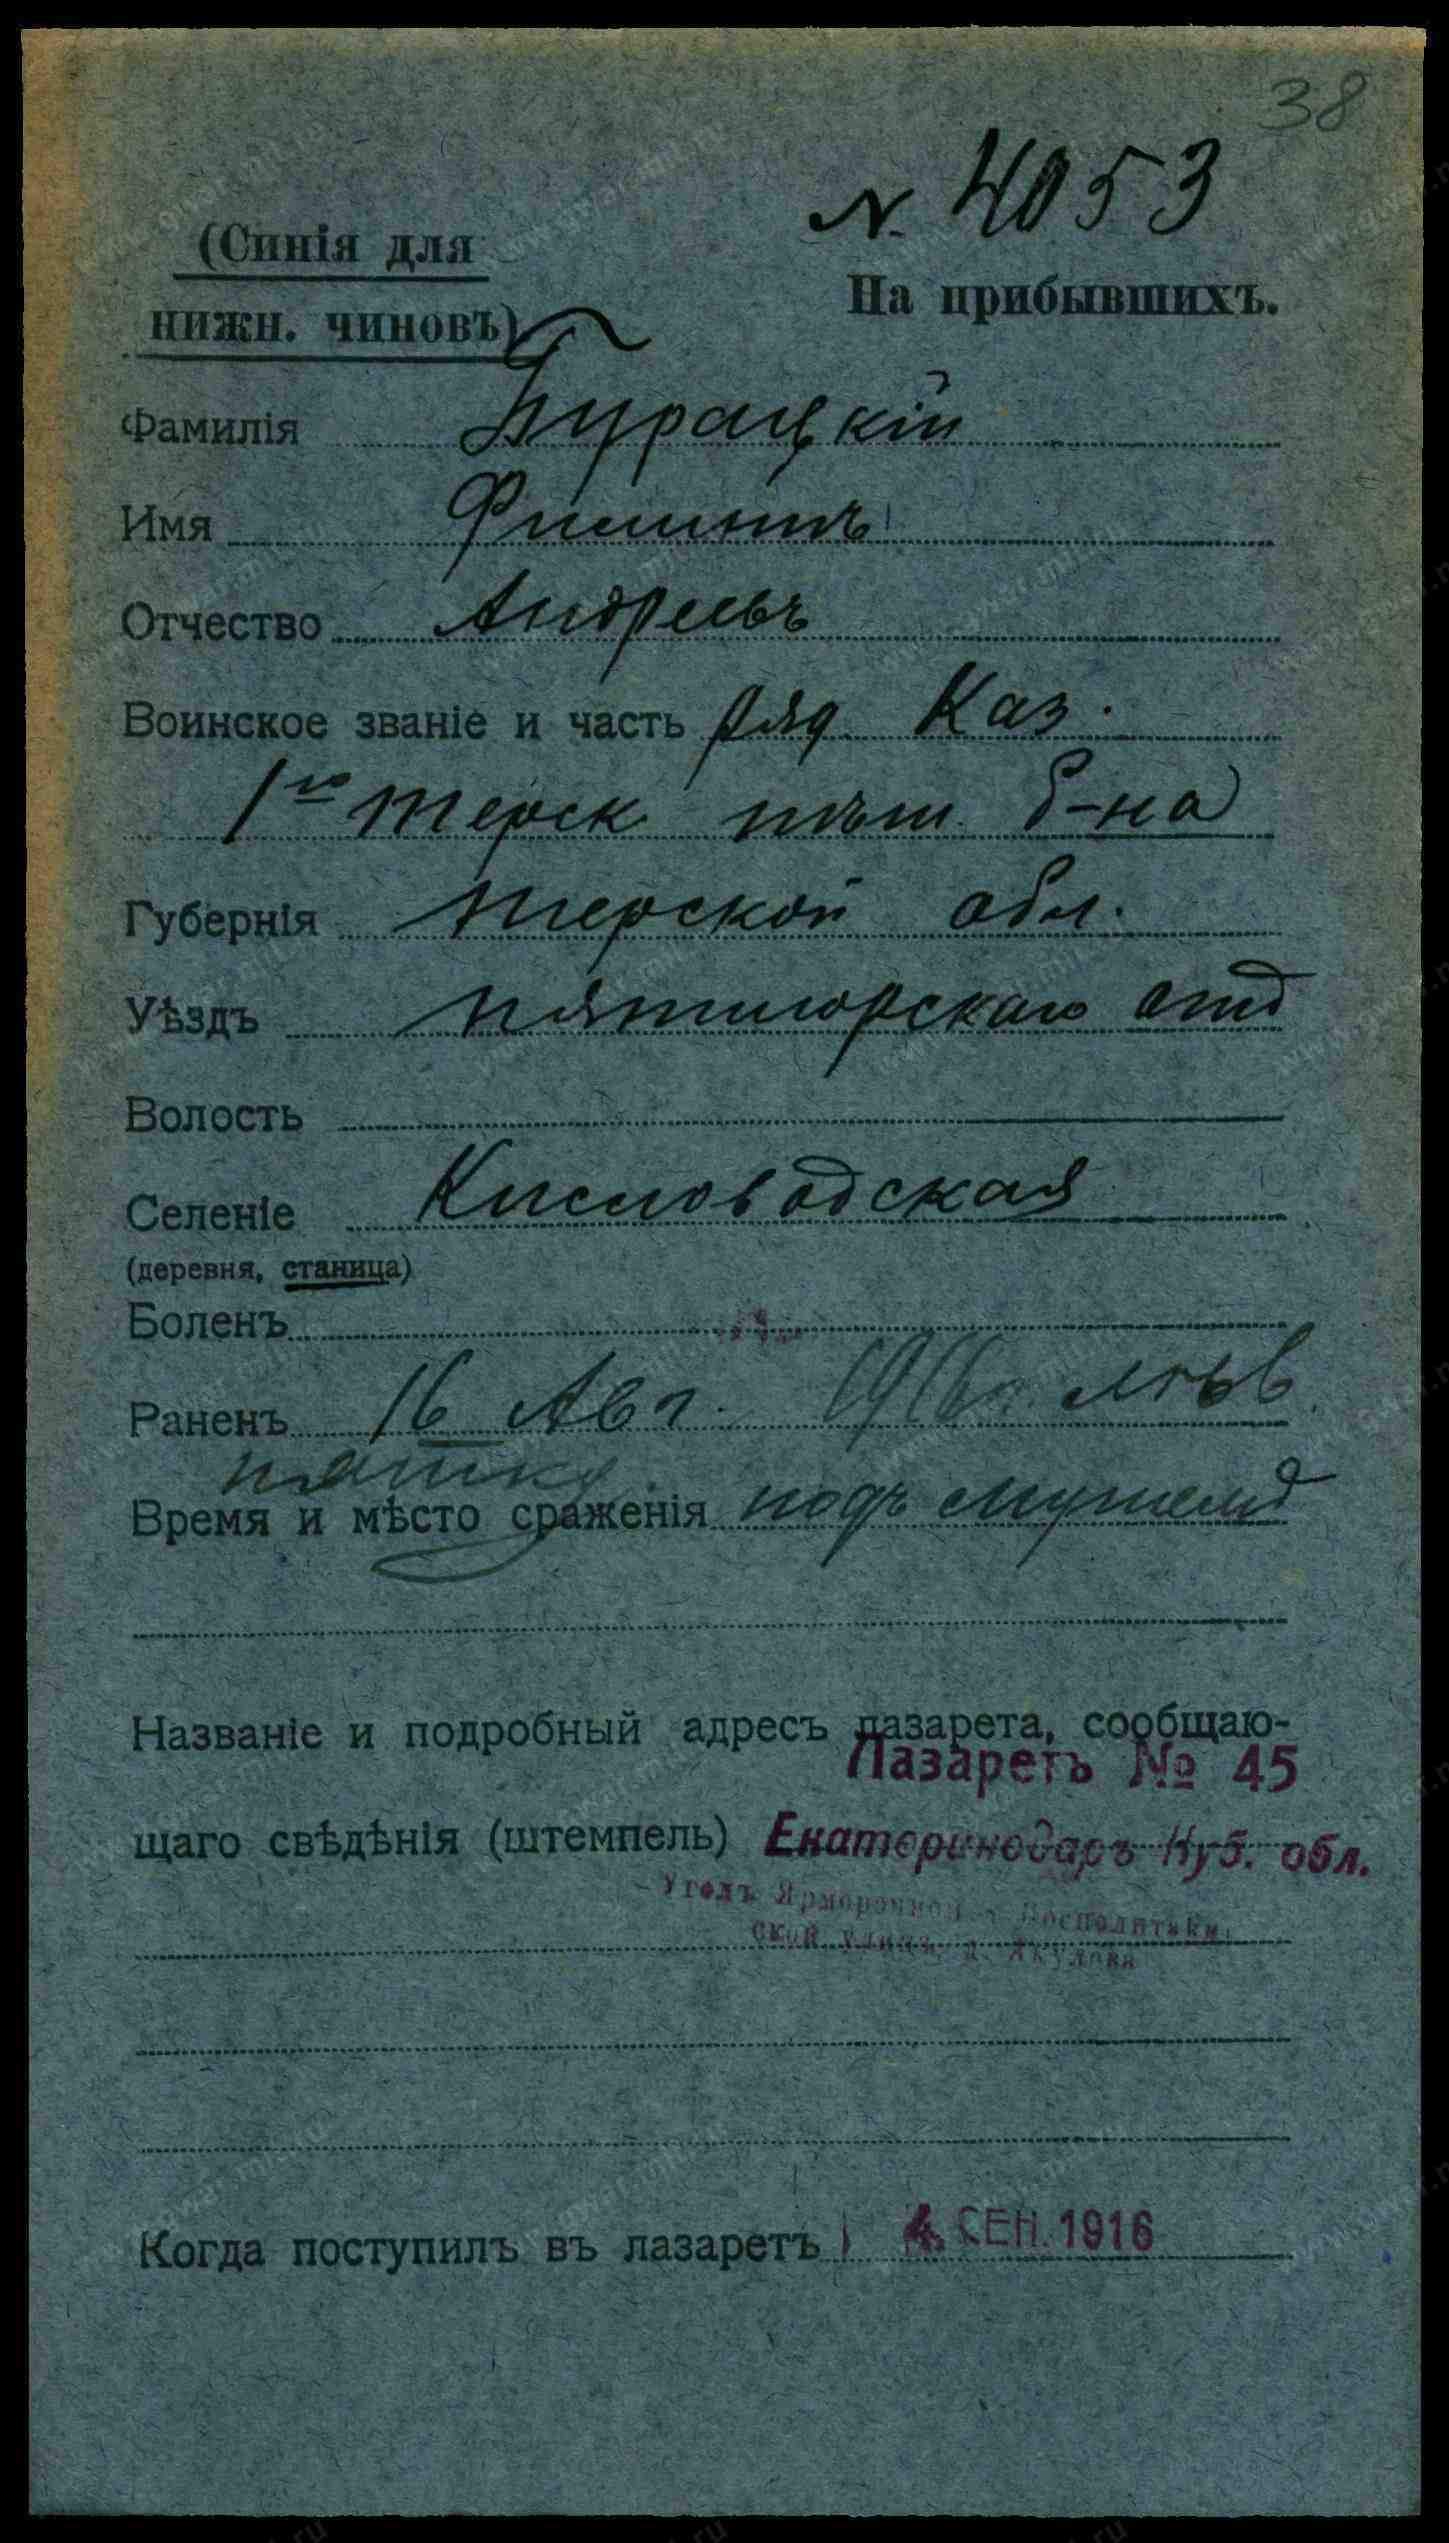 38
№ 4053
(Синія для
нижн. чиновъ)
На прибывшихъ.
Фамилія Бурацкій
Имя Филиппъ
Отчество Андреевъ
Воинское званіе и часть ряд. Каз.
1го Терск. пѣш. б-на
Губернія Терской обл.
Уѣздъ Пятигорскаго отд
Волость
Селеніе Кисловодская
(деревня, станица)
Боленъ
Раненъ 16 Авг. 1916 г. лѣв.
пятку
Время и мѣсто сраженія подъ
Названіе и подробный адресъ лазарета, сообщаю-
Лазаретъ № 45
щаго свѣдѣнія (штемпель) Екатеринодаръ Куб. обл.
Уголъ Ярмарочной
ской улицъ, д. Акулова
Когда поступилъ въ лазаретъ 4 СЕН. 1916